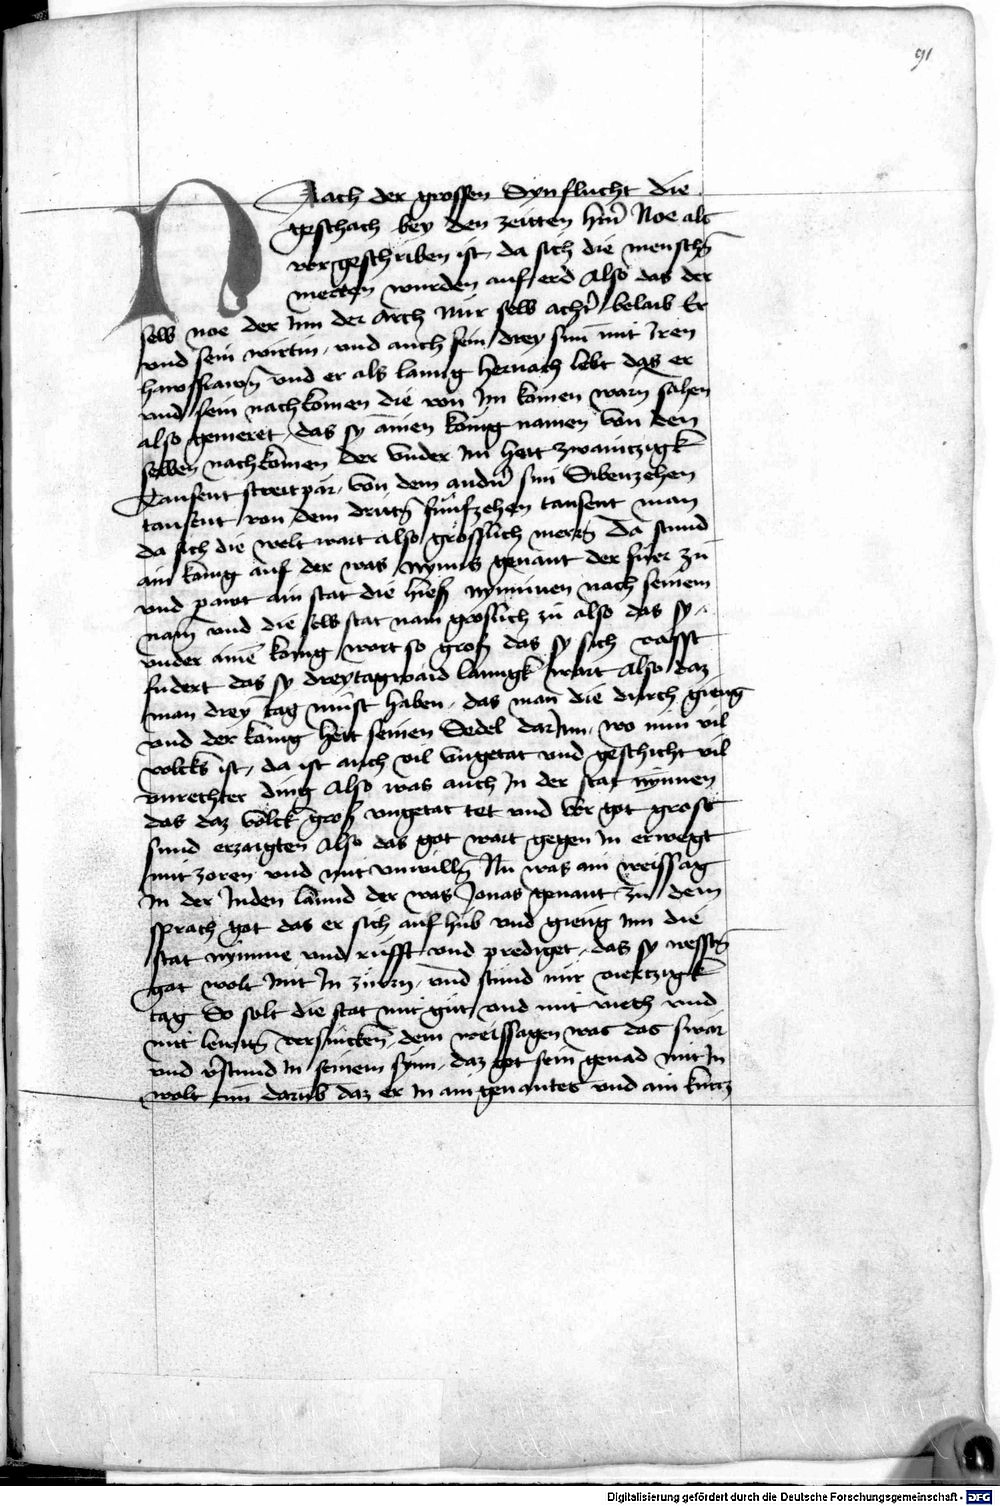 91
Nach der grossen Synflucht die
geschach bey den zeitten hern Noe als
vorgeschriben ist, da sich die mensch̄
merten wurden auf erd Also das der
selb noe der Inn der Arch nur selb acht belaib Er
und sein wirtin, und auch sein drey sun mit Iren
hawsfrawn̄ und er als lanng hernach lebt das er
und sein nachkomen die von Im komen warn sahen
also gemeret, das sy ainen künig namen von den
selben nachkomen der under Im hett zwainczigk
Tausent streitpar, von dem andern sun Sibenzehen
tausent von dem dritn̄ funfzehen tausent man
da sich die welt wart also grösslich mern̄ Da stund
ain künig auf der was nynus genant der fuer zu
und pawt ain stat die hieß nyniuen nach seinem
nam̄ und die selb stat nam gröslich zu also das sy
under aine künig wart so groß das sy sich vasst
fudert das sy dreytagwaid lanngk wart Also daz
man drey tag must haben, das man die durch gieng
und der künig hett seinen Sedel darInn, wo nun vil
volcks ist, da ist auch vil ungetat und geschicht vil
unrechter ding Also was auch In der stat nyniuen
das daz volck groß ungetat tet und vor got gross
sund erzaigten Also das got wart gegen In erwegt
mit zoren und mit unwilln̄ Nu was ain weissag
In der Juden lannd der was Jonas genant, zu dem
sprach got das er sich auf hub und gieng Inn die
stat nyniue und rufft und prediget, das sy wesstn̄
got wolt mit In zürn̄, und stund nür viertzigk
tag So solt die stat mit gut und mit viech und
mit lewtn̄ versincken̄, dem weissagen was das swär
und v̄stund In seinem synn, daz got sein genad mit In
wolt tun darub daz er In ain genantes und ain kurcz
Digitalisierung gefördert durch die Deutsche Forschungsgemeinschaft - DFG